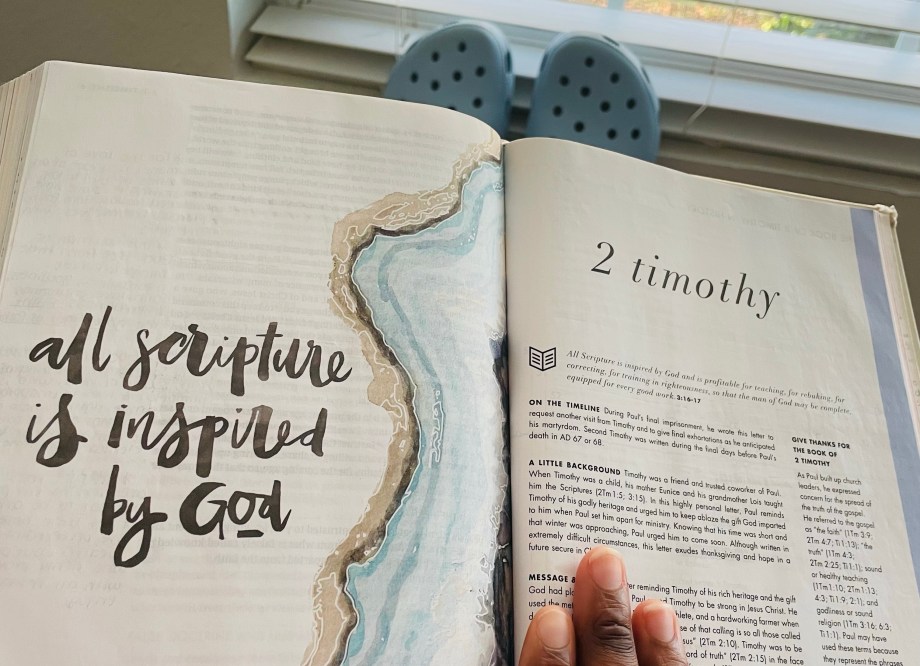 all scripture
is inspired
by God
2 timothy
All Scripture is inspired by God and is profitable for teaching, for rebuking, for
correcting, for training in righteousness, so that the man of God may be complete,
equipped for every good work. 3:16-17
ON THE TIMELINE During Paul's final imprisonment, he wrote this letter to
request another visit from Timothy and to give final exhortations as he anticipated
his martyrdom. Second Timothy was written during the final days before Paul's
death in AD 67 or 68.
A LITTLE BACKGROUND Timothy was a friend and trusted coworker of Paul.
When Timothy was a child, his mother Eunice and his grandmother Lois taught
him the Scriptures (2Tm 1:5; 3:15). In this highly personal letter, Paul reminds
Timothy of his godly heritage and urged him to keep ablaze the gift God imparted
to him when Paul set him apart for ministry. Knowing that his time was short and
that winter was approaching, Paul urged him to come soon. Although written in
extremely difficult circumstances, this letter exudes thanksgiving and hope in a
future secure in
MESSAGE & reminding Timothy of his rich heritage and the gift
God had Timothy to be strong in Jesus Christ. He
used the and a hardworking farmer when
of that calling is so all those called
(2Tm 2:10). Timothy was to be
of truth" (2Tm 2:15) in the face
GIVE THANKS FOR
THE BOOK OF
2 TIMOTHY
As Paul built up church
leaders, he expressed
concern for the spread of
the truth of the gospel.
He referred to the gospel
as "the faith" (1Tm 3:9;
2Tm 4:7; Ti 1:13); "the
truth" (1Tm 4:3;
2Tm 2:25; Ti 1:1); sound
or healthy teaching
(1Tm 1:10; 2Tm 1:13;
4:3; Ti 1:9; 2:1); and
godliness or sound
religion (1Tm 3:16; 6:3;
Ti 1:1). Paul may have
used these terms because
they represent the phrases